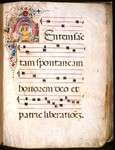 Mentem sāc
tam spontaneam
honorem deo et
patrie liberationez.